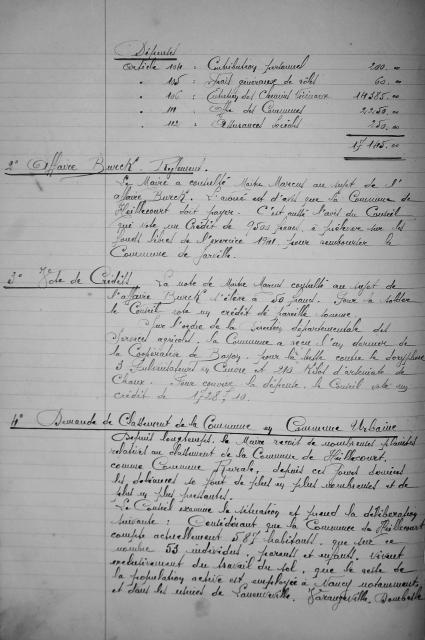 Dépenses
Article 104 : Contribution personnel 200.00
" 105 : Frais généraux de rôles 60.00
" 106 : Entretien des Chemins Vicinaux 14585.00
" 111 : Office des Communes 2250.00
" 112 : Assurances Sociales 250.00
17145.00
2° Affaire Burck. Règlement.
Le Maire a consulté Maitre Marcus au sujet de l'
affaire Burck. L'avoué est d'avis que la Commune de
Heillecourt doit payer. C'est aussi l'avis du Conseil
qui vote un crédit de 950 francs, à prélever sur les
fonds libres de l'exercice 1941 pour rembourser la
Commune de Jarville.
3° Vote de Crédits. La note de Maitre Marcus consulté au sujet de
l'affaire Burck s'élève à 50 francs. Pour la solder
le Conseil vote un crédit de pareille somme.
Sur l'ordre de la Direction départementale des
Services agricoles, la Commune a reçu l'an dernier de
la Coopérative de Bayon, pour la lutte contre le doryphore
3 Pulvérisateurs en Cuivre et 210 Kilos d'arséniate de
Chaux. Pour couvrir la dépense, le Conseil vote un
crédit de 1728f10.
4° Demande de Classement de la Commune en Commune Urbaine
Depuis longtemps, le Maire reçoit de nombreuses plaintes
relatives au classement de la Commune de Heillecourt,
comme Commune Rurale, depuis ces jours derniers
les doléances se font de plus en plus nombreuses et de
plus en plus pressantes.
Le Conseil examine la situation et prend la délibération
suivante : Considérant que la Commune de Heillecourt
compte actuellement 587 habitants, que sur ce
nombre 53 individus, parents et enfants, vivent
exclusivement du travail du sol, que le reste de
la population active est employée à Nancy notamment,
et dans les usines de Laneuveville, Varangéville, Dombasle